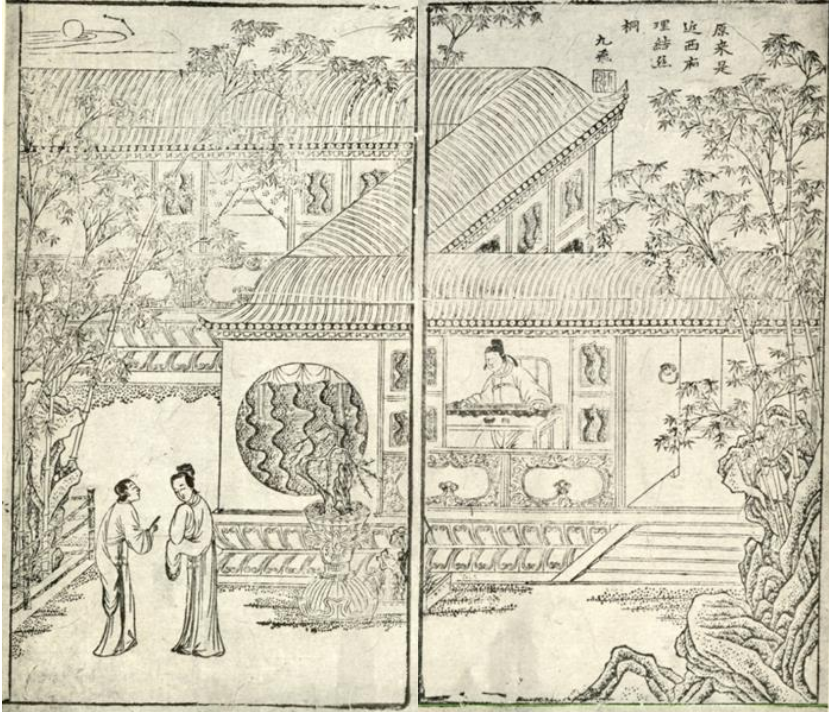 原來是
近西廂
理結絲
桐
九